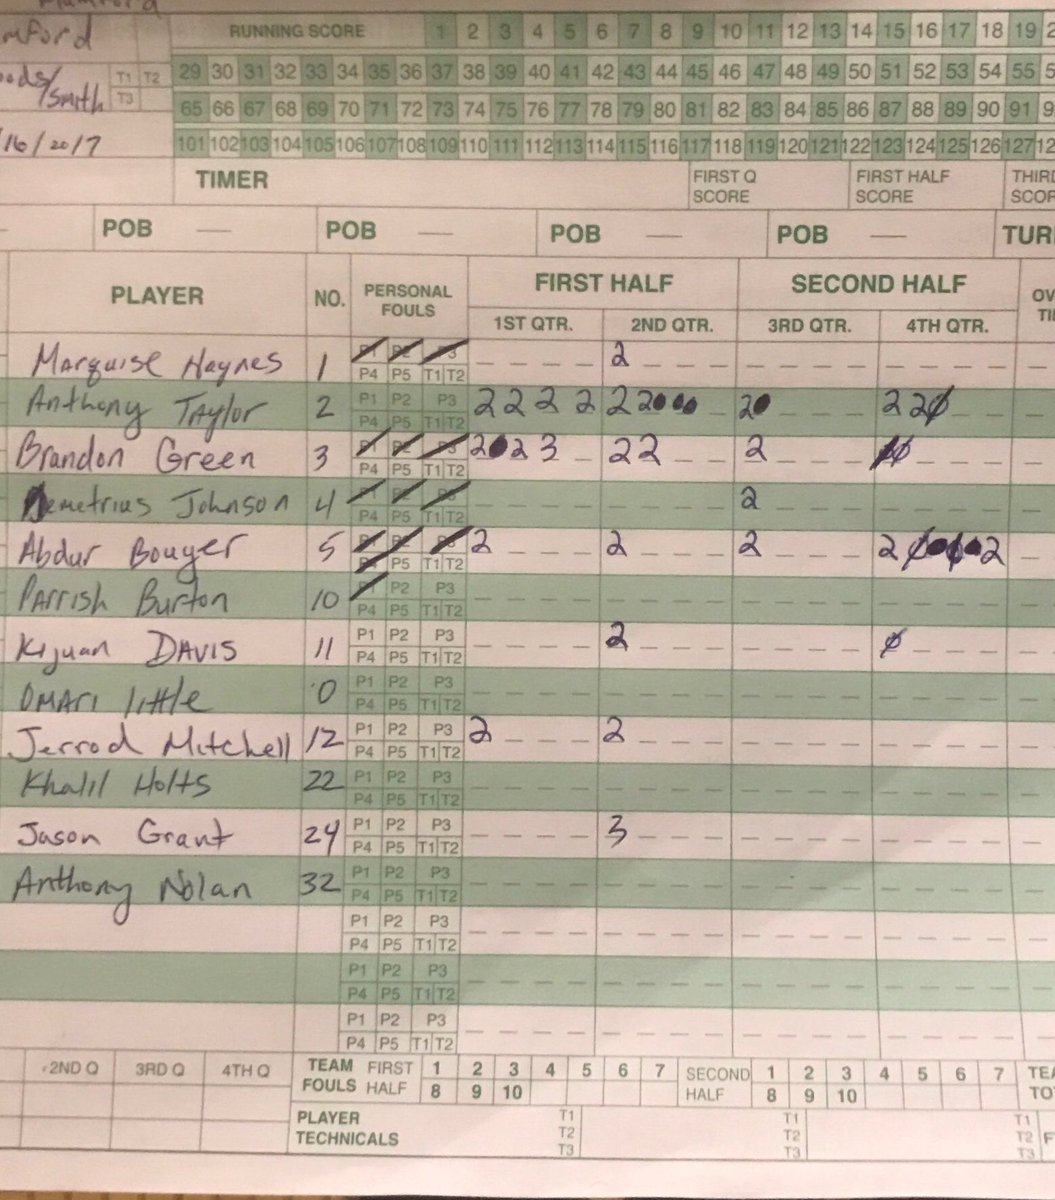 Mumford
mford RUNNING SCORE 1 2 3 4 5 6 7 8 9 10 11 12 13 14 15 16 17 18 19 2
ods/Smith T1 T2 29 30 31 32 33 34 35 36 37 38 39 40 41 42 43 44 45 46 47 48 49 50 51 52 53 54 55 5
T3 65 66 67 68 69 70 71 72 73 74 75 76 77 78 79 80 81 82 83 84 85 86 87 88 89 90 91 9
/16/2017 101 102 103 104 105 106 107 108 109 110 111 112 113 114 115 116 117 118 119 120 121 122 123 124 125 126 127 12
TIMER FIRST Q SCORE FIRST HALF SCORE THIRD SCOR
POB POB POB POB TUR
PLAYER NO. PERSONAL FOULS FIRST HALF SECOND HALF OV
1ST QTR. 2ND QTR. 3RD QTR. 4TH QTR. TI
Marquise Haynes 1 2
P4 P5 T1 T2
Anthony Taylor 2 P1 P2 P3 2 2 2 2 2 2 2 2 2
P4 P5 T1 T2
Brandon Green 3 2 2 3 2 2 2
P4 P5 T1 T2
Demetrius Johnson 4 2
P4 P5 T1 T2
Abdur Bouyer 5 2 2 2 2 2
P5 T1 T2
Parrish Burton 10 P2 P3
P4 P5 T1 T2
Kijuan Davis 11 P1 P2 P3 2
P4 P5 T1 T2
Omari little 0 P1 P2 P3
P4 P5 T1 T2
Jerrod Mitchell 12 P1 P2 P3 2 2
P4 P5 T1 T2
Khalil Holts 22 P1 P2 P3
P4 P5 T1 T2
Jason Grant 24 P1 P2 P3 3
P4 P5 T1 T2
Anthony Nolan 32 P1 P2 P3
P4 P5 T1 T2
P1 P2 P3
P4 P5 T1 T2
P1 P2 P3
P4 P5 T1 T2
P1 P2 P3
P4 P5 T1 T2
2ND Q 3RD Q 4TH Q TEAM FOULS FIRST HALF 1 2 3 4 5 6 7 SECOND HALF 1 2 3 4 5 6 7 TEA
8 9 10 8 9 10 TO
PLAYER TECHNICALS T1 T1 T1
T2 T2 T2 F
T3 T3 T3